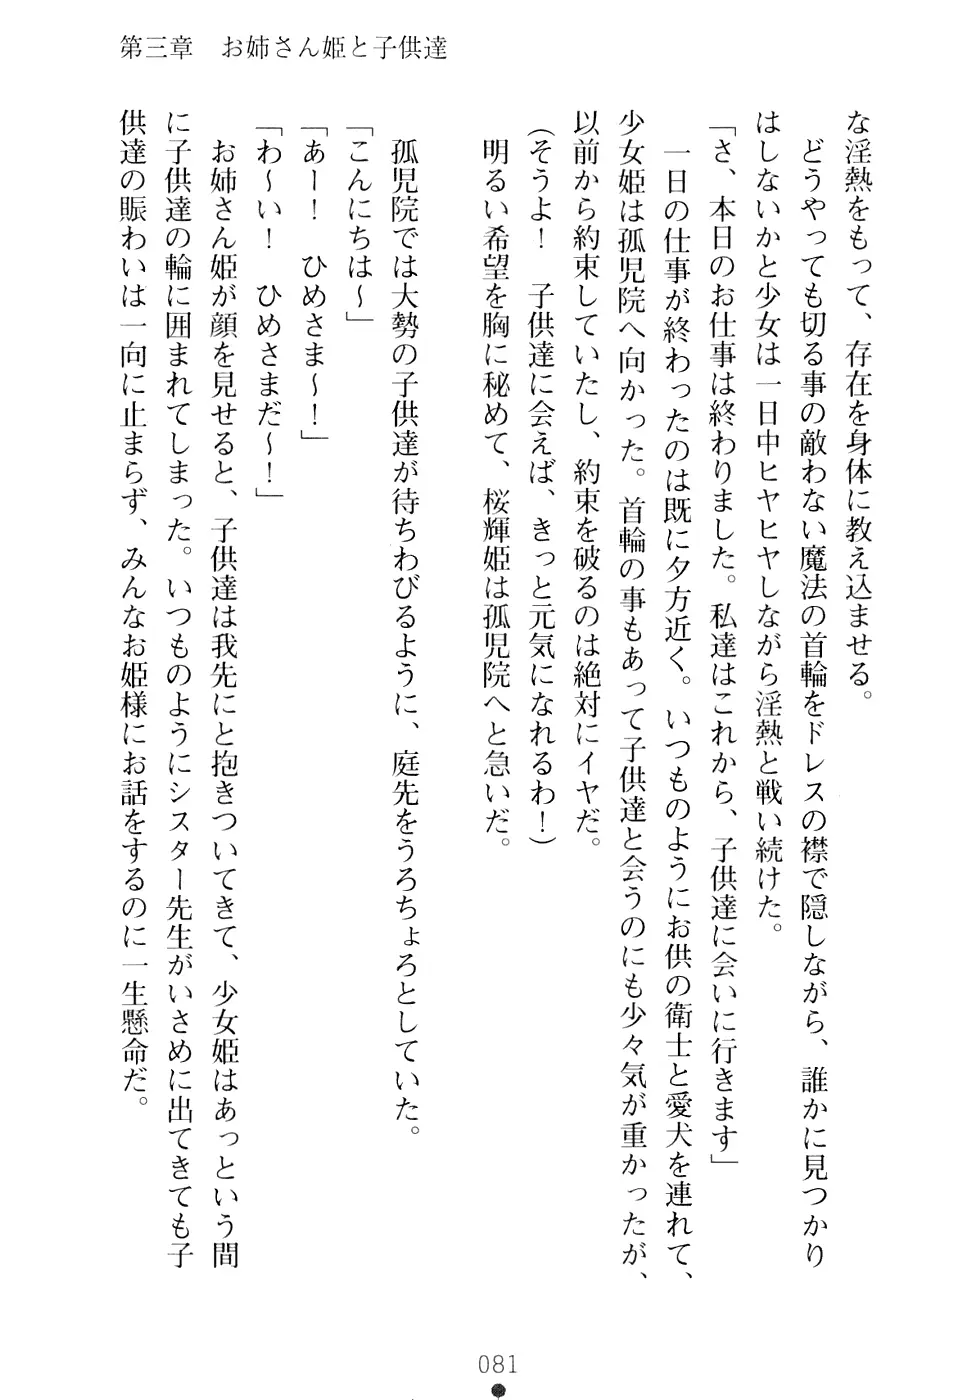 第三章　お姉さん姫と子供達
な淫熱をもって、存在を身体に教え込ませる。
　どうやっても切る事の敵わない魔法の首輪をドレスの襟で隠しながら、誰かに見つかり
はしないかと少女は一日中ヒヤヒヤしながら淫熱と戦い続けた。
「さ、本日のお仕事は終わりました。私達はこれから、子供達に会いに行きます」
　一日の仕事が終わったのは既に夕方近く。いつものようにお供の衛士と愛犬を連れて、
少女姫は孤児院へ向かった。首輪の事もあって子供達と会うのにも少々気が重かったが、
以前から約束していたし、約束を破るのは絶対にイヤだ。
（そうよ！　子供達に会えば、きっと元気になれるわ！）
　明るい希望を胸に秘めて、桜輝姫は孤児院へと急いだ。
　孤児院では大勢の子供達が待ちわびるように、庭先をうろちょろとしていた。
「こんにちは〜」
「あー！　ひめさま〜！」
「わ〜い！　ひめさまだ〜！」
　お姉さん姫が顔を見せると、子供達は我先にと抱きついてきて、少女姫はあっという間
に子供達の輪に囲まれてしまった。いつものようにシスター先生がいさめに出てきても子
供達の賑わいは一向に止まらず、みんなお姫様にお話をするのに一生懸命だ。
081